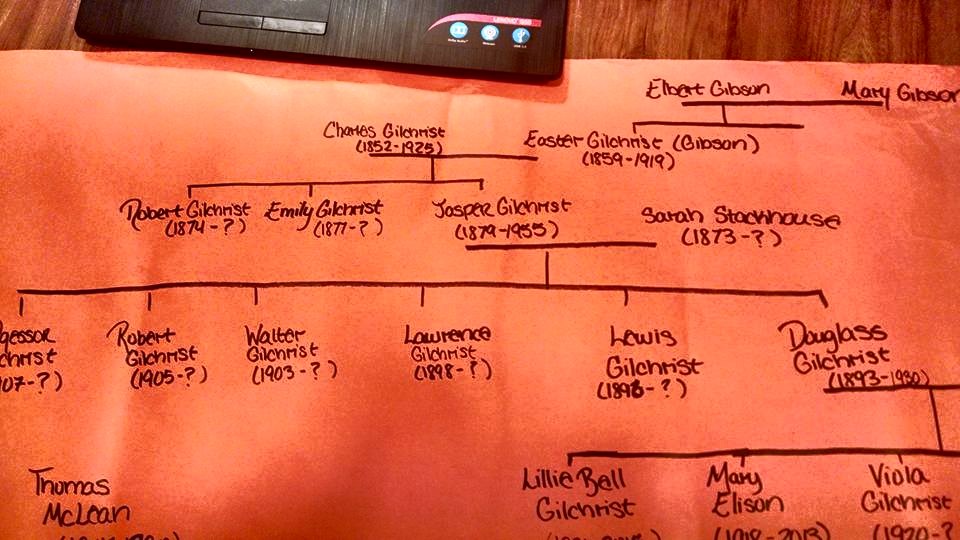 LENOVO G50
Elbert Gibson
Mary Gibson
Charles Gilchrist
(1852-1925)
Easter Gilchrist (Gibson)
(1859-1919)
Robert Gilchrist
(1874-?)
Emily Gilchrist
(1877-?)
Jasper Gilchrist
(1879-1955)
Sarah Stackhouse
(1873-?)
Robert
Gilchrist
(1905-?)
Walter
Gilchrist
(1903-?)
Lawrence
Gilchrist
(1898-?)
Lewis
Gilchrist
(1896-?)
Douglass
Gilchrist
(1893-1930)
Thomas
McLean
Lillie Bell
Gilchrist
Mary
Elison
(1918-2013)
Viola
Gilchrist
(1920-?